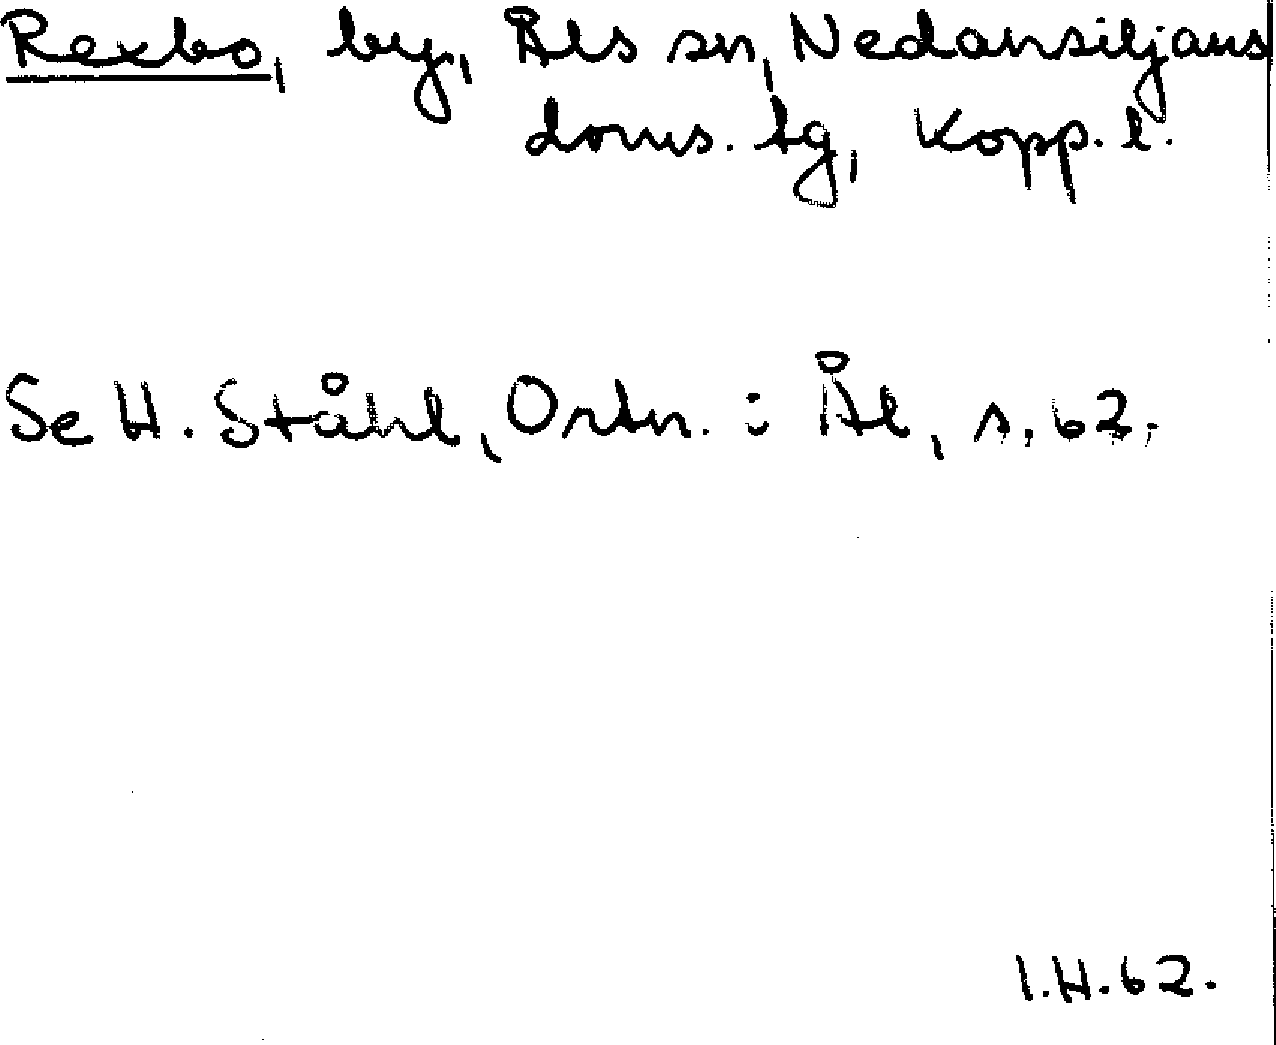 Rexbo, by, Åls sn, Nedansiljans
doms. tg, Kopp. l.
Se H. Ståhl, Ortn. i Ål, s. 62.
I.H.62.